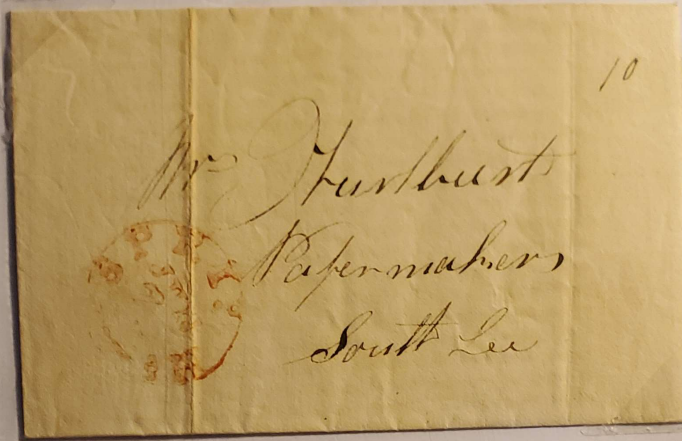 10
Mr Hurlburt
Papermakers
South Lee